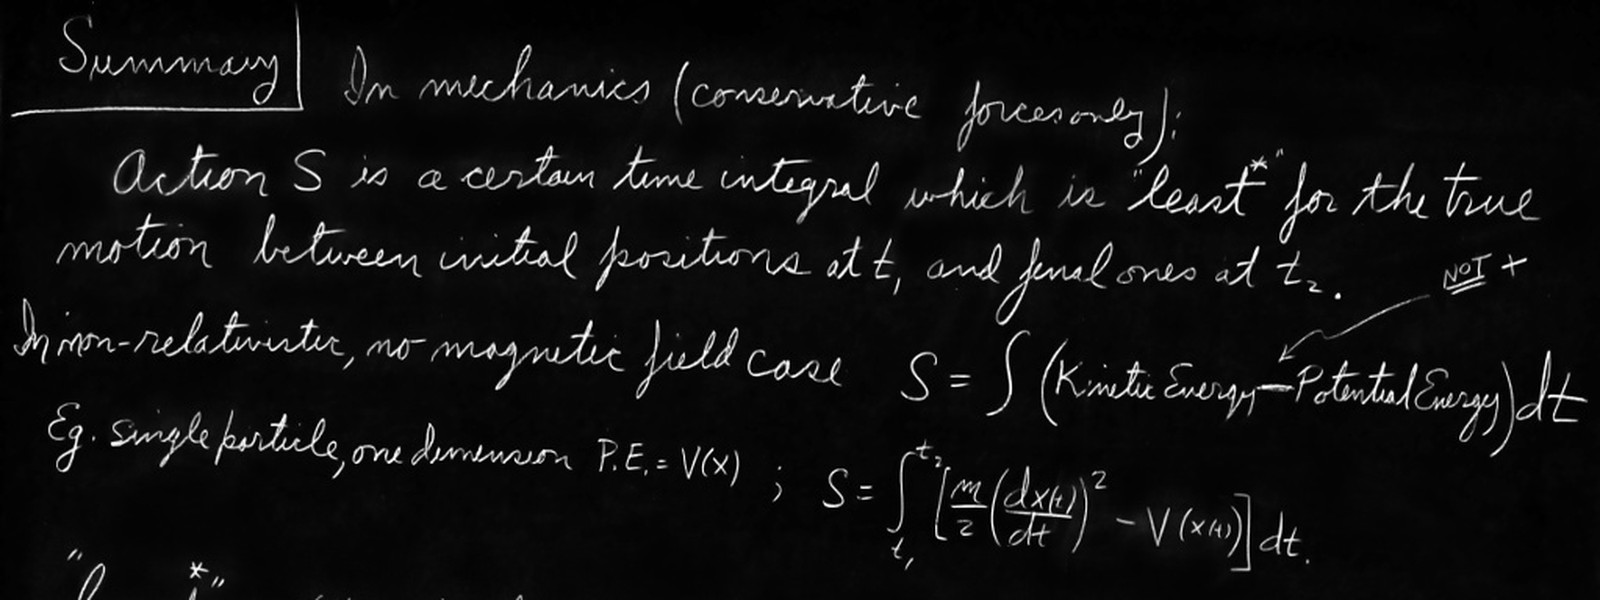 Summary In mechanics (conservative forces only):
Action S is a certain time integral which is "least*" for the true
motion between initial positions at t₁ and final ones at t₂.
NOT +
In non-relativistic, no magnetic field case S = ∫ (Kinetic Energy − Potential Energy) dt
Eg. single particle, one dimension P.E. = V(x) ; S = ∫_{t₁}^{t₂} [m/2 (dx(t)/dt)² − V(x(t))] dt.